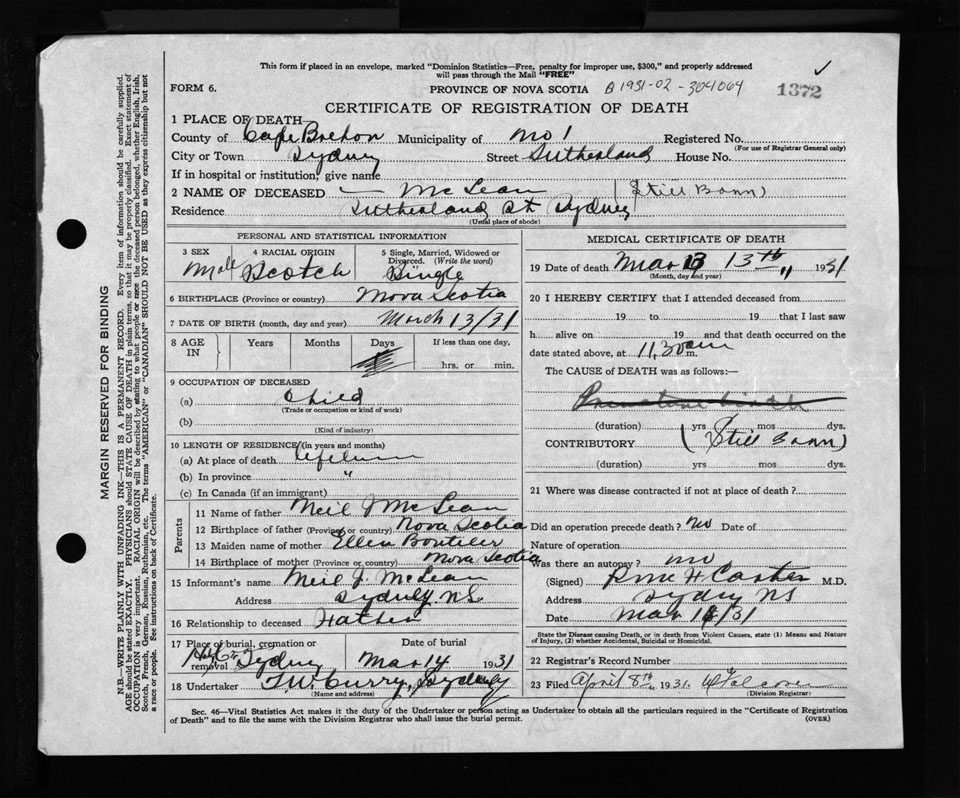 This form if placed in an envelope, marked "Dominion Statistics—Free, penalty for improper use, $300," and properly addressed
will pass through the Mail "FREE"
FORM 6.
PROVINCE OF NOVA SCOTIA
B 1931-02-304064
1372
CERTIFICATE OF REGISTRATION OF DEATH
1 PLACE OF DEATH—
County of Cape Breton Municipality of No 1 Registered No.
(For use of Registrar General only)
City or Town Sydney Street Sutherland House No.
If in hospital or institution, give name
2 NAME OF DECEASED — McLean (Still Born)
Residence Sutherland St Sydney
(Usual place of abode)
PERSONAL AND STATISTICAL INFORMATION
3 SEX Male
4 RACIAL ORIGIN Scotch
5 Single, Married, Widowed or Divorced. (Write the word) Single
6 BIRTHPLACE (Province or country) Nova Scotia
7 DATE OF BIRTH (month, day and year) March 13/31
8 AGE IN Years Months Days If less than one day.
hrs. or min.
9 OCCUPATION OF DECEASED
(a) Child
(Trade or occupation or kind of work)
(b)
(Kind of industry)
10 LENGTH OF RESIDENCE (in years and months)
(a) At place of death
(b) In province "
(c) In Canada (if an immigrant)
Parents
11 Name of father Neil J McLean
12 Birthplace of father (Province or country) Nova Scotia
13 Maiden name of mother Ellen Boutilier
14 Birthplace of mother (Province or country) Nova Scotia
15 Informant's name Neil J. McLean
Address Sydney N.S.
16 Relationship to deceased Father
17 Place of burial, cremation or removal Sydney
Date of burial Mar 14 1931
18 Undertaker T W Curry, Sydney
(Name and address)
MEDICAL CERTIFICATE OF DEATH
19 Date of death Mar 13 13th 1931
(Month, day and year)
20 I HEREBY CERTIFY that I attended deceased from
19 to 19 that I last saw
h alive on 19 and that death occurred on the
date stated above, at 11,30 am m.
The CAUSE of DEATH was as follows:—
Premature birth
(duration) yrs mos dys.
CONTRIBUTORY (Still Born)
(duration) yrs mos dys.
21 Where was disease contracted if not at place of death?
Did an operation precede death? no Date of
Nature of operation
Was there an autopsy? no
(Signed) M.D.
Address Sydney NS
Date Mar 14/31
State the Disease causing Death, or in death from Violent Causes, state (1) Means and Nature
of Injury, (2) whether Accidental, Suicidal or Homicidal.
22 Registrar's Record Number
23 Filed April 8th 1931
(Division Registrar)
Sec. 46—Vital Statistics Act makes it the duty of the Undertaker or person acting as Undertaker to obtain all the particulars required in the "Certificate of Registration
of Death" and to file the same with the Division Registrar who shall issue the burial permit.
(OVER)
MARGIN RESERVED FOR BINDING
N.B.—WRITE PLAINLY WITH UNFADING INK—THIS IS A PERMANENT RECORD. Every item of information should be carefully supplied.
AGE should be stated EXACTLY. PHYSICIANS should STATE CAUSE OF DEATH in plain terms, so that it may be properly classified. Exact statement of
OCCUPATION is very important. RACIAL ORIGIN will be described by stating to what people or race the deceased person belonged, whether English, Irish,
Scotch, French, German, Russian, Ruthenian, etc. The terms "AMERICAN" or "CANADIAN" SHOULD NOT BE USED as they express citizenship but not
a race or people. See instructions on back of Certificate.